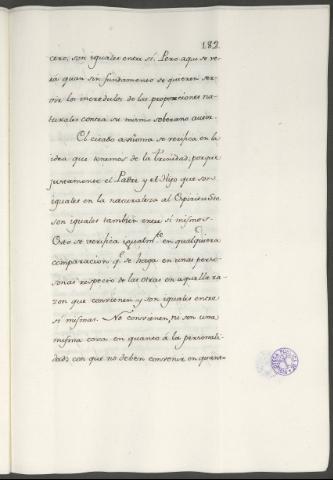 182.
cero, son iguales entre sí. Pero aqui se ve-
rá quan sin fundamento se quieren ser-
vir los incredulos de las proporciones na-
turales contra su mismo soberano autor.
El citado axîoma se verifica en la
idea que tenemos de la Trinidad, porque
juntamente el Padre y el Hijo que son
iguales en la naturaleza al Espiritu Sto
son iguales tambien entre sí mismos.
Esto se verifica igualmte en qualquiera
comparacion qe se haga en unas perso-
sonas respecto de las otras en aquella ra-
zon que convienen y son iguales entre
sí mismas. No convienen, ni son una
misma cosa en quanto á la personali-
dad, con que no deben convenir en quanto